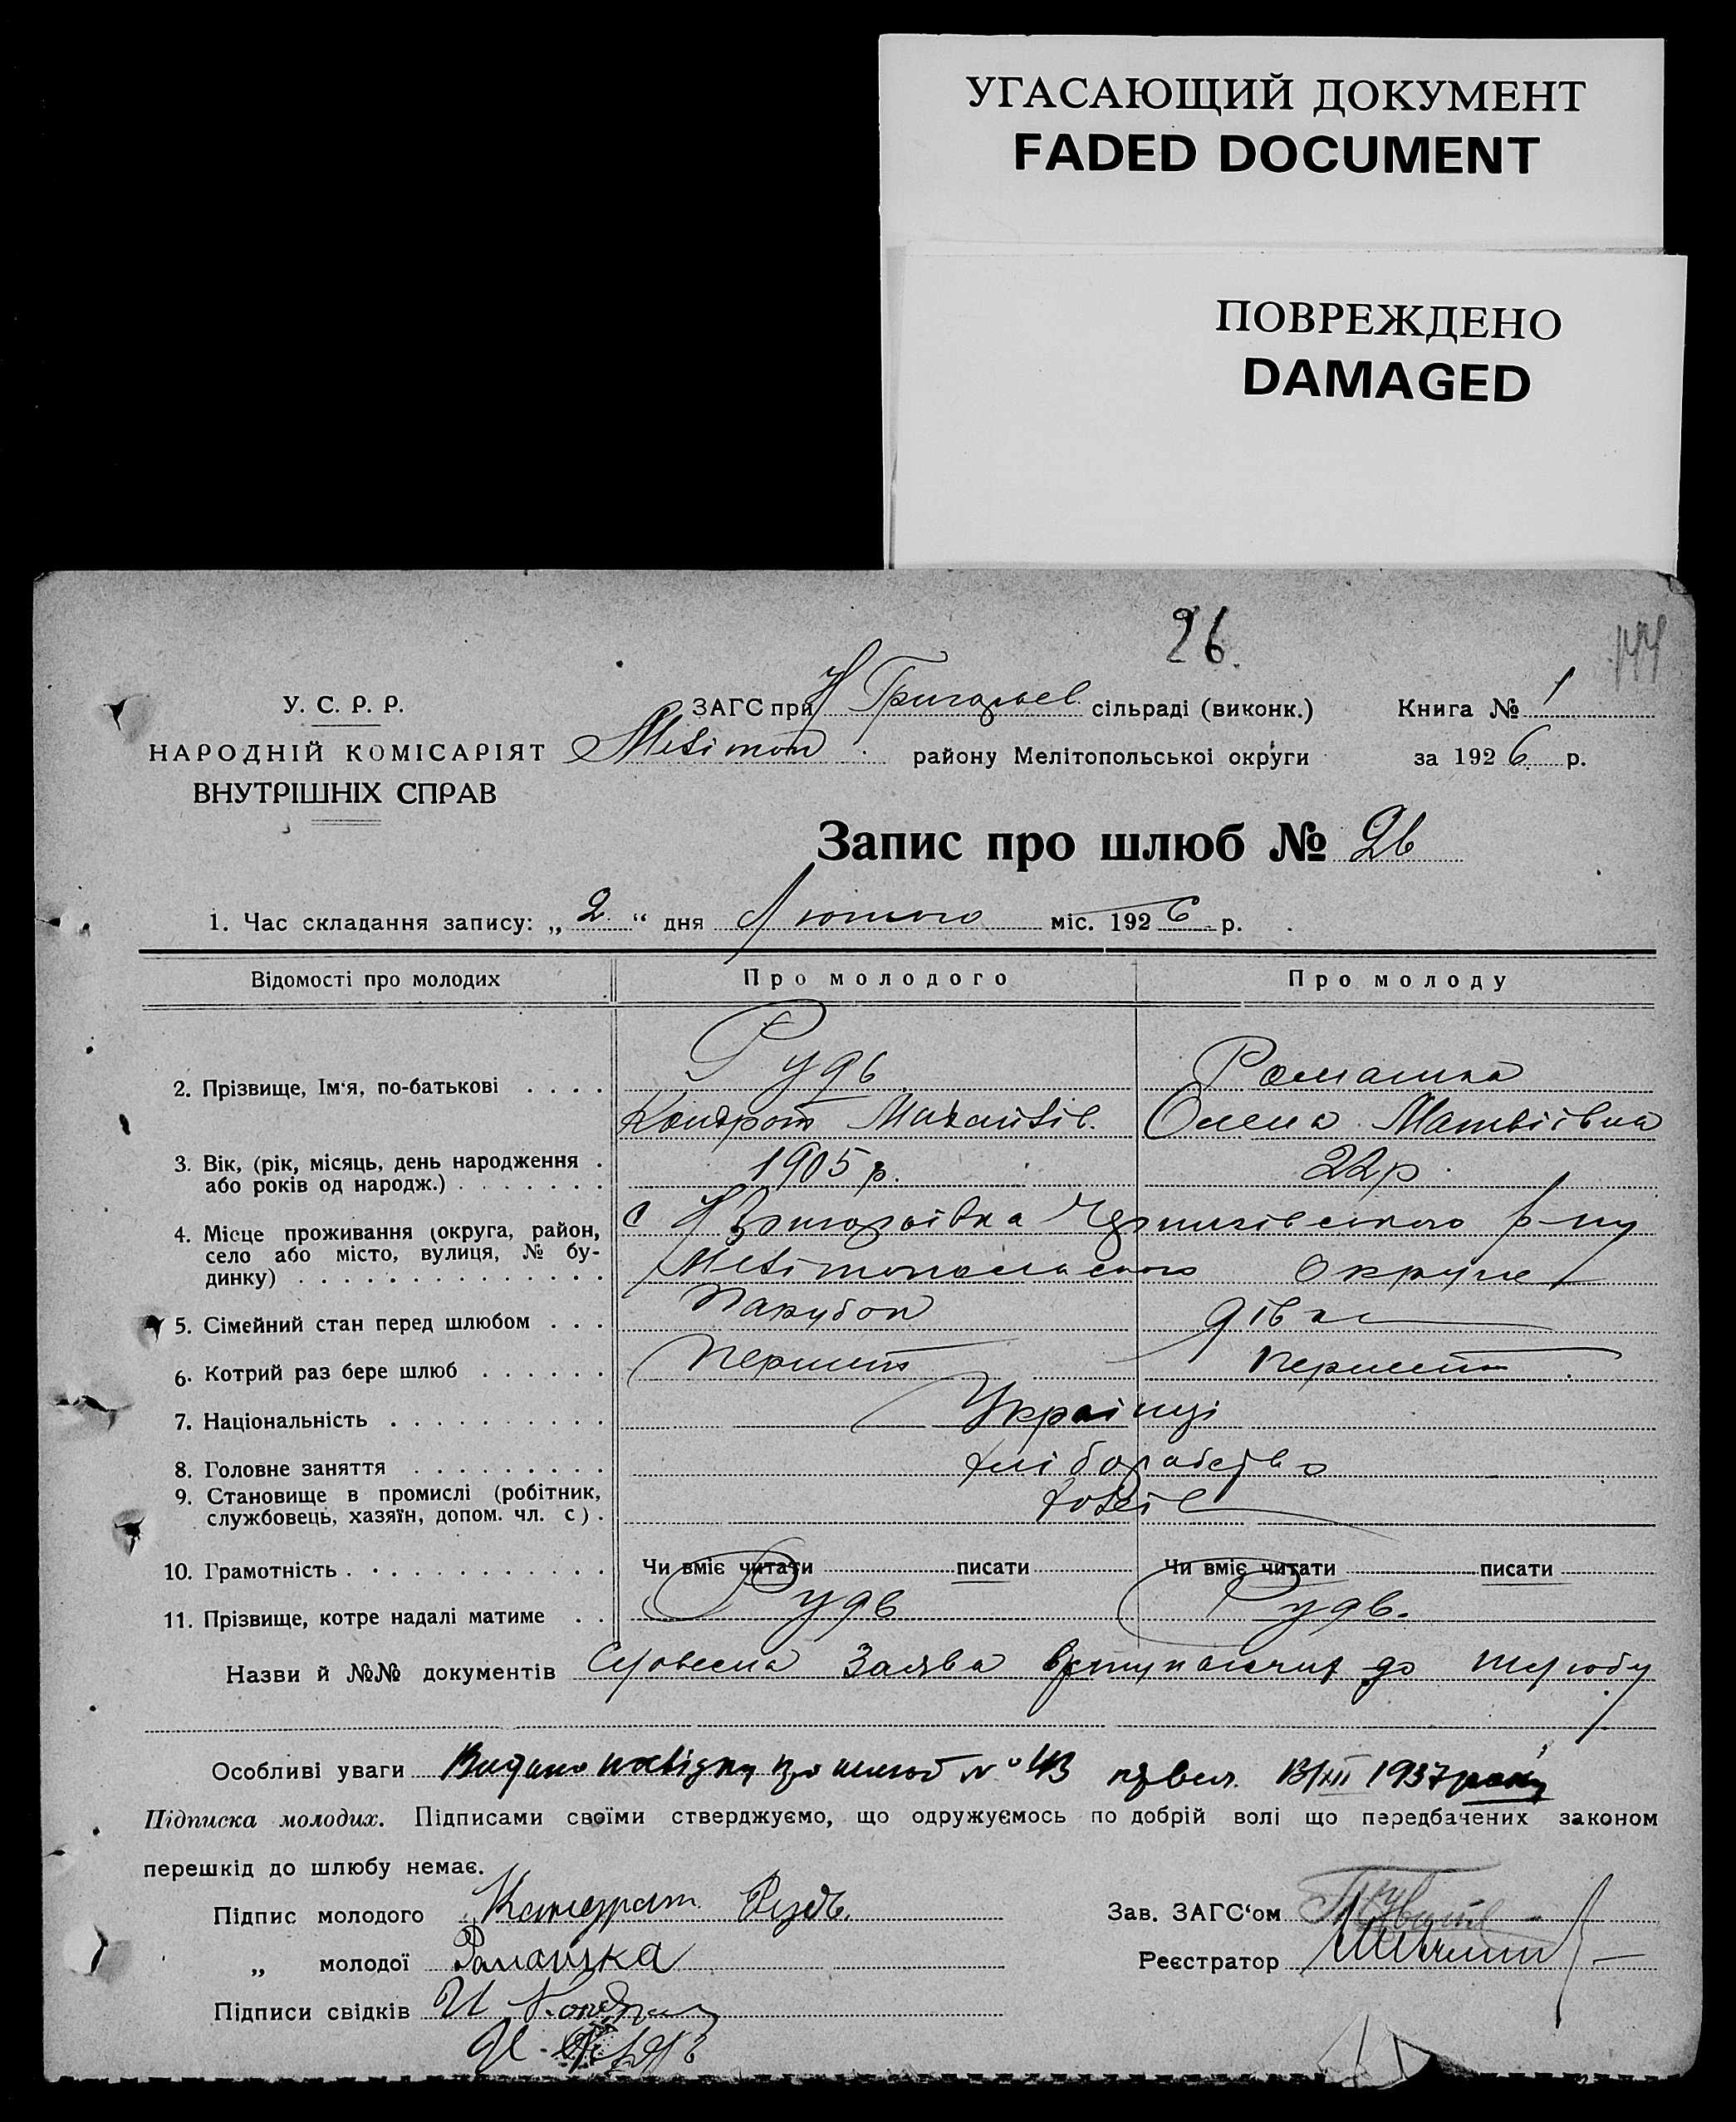 УГАСАЮЩИЙ ДОКУМЕНТ
FADED DOCUMENT
ПОВРЕЖДЕНО
DAMAGED
26.
144
У. С. Р. Р.
НАРОДНІЙ КОМІСАРІЯТ
ВНУТРІШНІХ СПРАВ
ЗАГС при Н Григорьев. сільраді (виконк.) Книга № 1
Меліт��п. району Мелітопольської округи за 1926 р.
Запис про шлюб № 26
1. Час складання запису: „2“ дня Лютого міс. 1926 р.
Відомості про молодих Про молодого Про молоду
2. Прізвище, Ім‘я, по-батькові . . . . Рудь Ромашка
Кондрат Михайлів. Олена Матвіївна
3. Вік, (рік, місяць, день народження . або років од народж.) . . . . . . . 1905 р. 22 р.
4. Місце проживання (округа, район, село або місто, вулиця, № будинку) . . . . . . . . . . . . . . с Н Григорьівка Чернигівського р-ну
Мелітопольського Округи
5. Сімейний стан перед шлюбом . . . Парубок дівка
6. Котрий раз бере шлюб . . . . . . Перший Перший
7. Національність . . . . . . . . . . Українці
8. Головне заняття . . . . . . . . . хліборобство
9. Становище в промислі (робітник, службовець, хазяїн, допом. чл. с) .
10. Грамотність . . . . . . . . . . . . Чи вміє читати писати Чи вміє читати писати
11. Прізвище, котре надалі матиме . . Рудь Рудь.
Назви й №№ документів Словесна Заява вступаючих до шлюбу
Особливі уваги Видано про шлюб № 43 13/XII 1937 року
Підписка молодих. Підписами своїми стверджуємо, що одружуємось по добрій волі що передбачених законом
перешкід до шлюбу немає.
Підпис молодого Кандрат Рудь. Зав. ЗАГС‘ом
„ молодої Ромашка Реєстратор
Підписи свідків И
И.